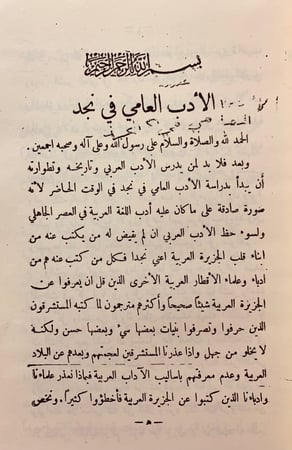 بسم الله الرحمن الرحيم
الأدب العامي في نجد
الحمد لله والصلاة والسلام على رسول الله وعلى آله وصحبه اجمعين.
وبعد فلا بد لمن يدرس الأدب العربي وتاريخه وتطوراته
أن يبدأ بدراسة الأدب العامي في نجد في الوقت الحاضر لأنه
صورة صادقة على ماكان عليه أدب اللغة العربية في العصر الجاهلي
ولسوء حظ الأدب العربي ان لم يقيض له من يكتب عنه من
ابناء قلب الجزيرة العربية اعني نجدا فكل من كتب عنه هم من
ادباء وعلماء الأقطار العربية الأخرى الذين قل ان يعرفوا عن
الجزيرة العربية شيئاً صحيحاً وأكثرهم مترجمون لما كتبه المستشرقون
الذين حرفوا وتصرفوا بنيات بعضها سيء وبعضها حسن ولكنه
لا يخلو من جهل واذا عذرنا المستشرقين لعجمتهم وبعدهم عن البلاد
العربية وعدم معرفتهم باساليب الآداب العربية فبماذا نعذر علماءنا
وادباءنا الذين كتبوا عن الجزيرة العربية فأخطؤوا كثيراً. ونخص
— ٥ —